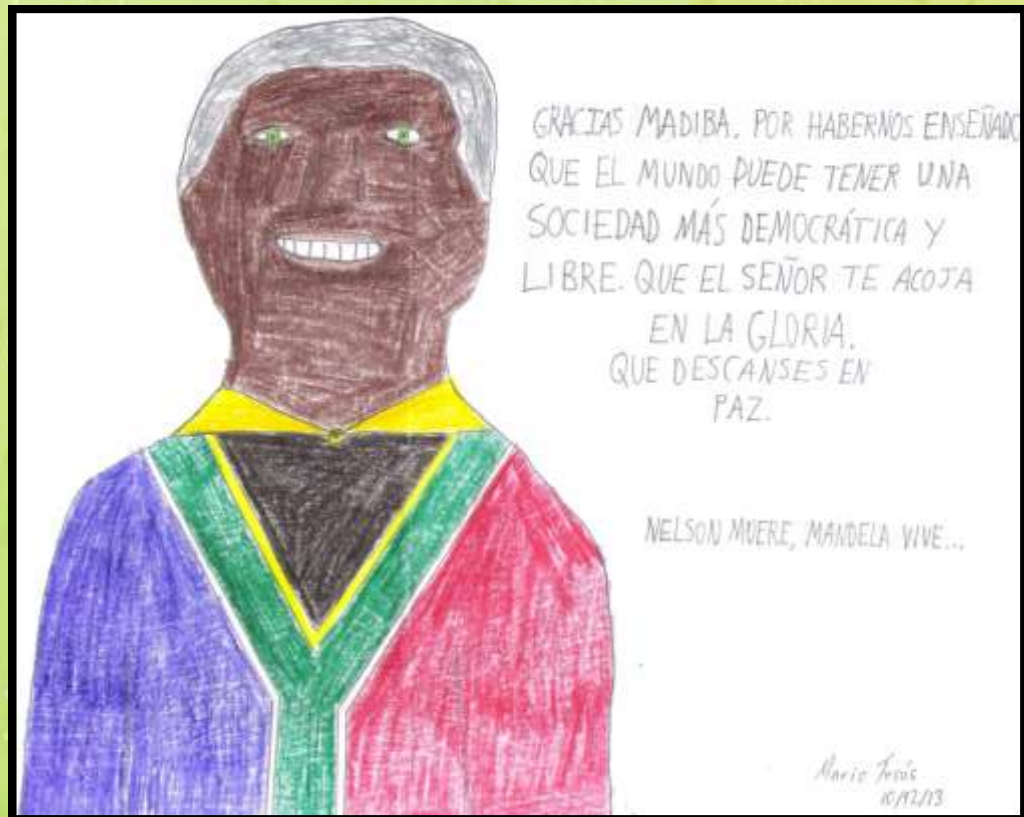 GRACIAS MADIBA. POR HABERNOS ENSEÑADO
QUE EL MUNDO PUEDE TENER UNA
SOCIEDAD MÁS DEMOCRÁTICA Y
LIBRE. QUE EL SEÑOR TE ACOJA
EN LA GLORIA.
QUE DESCANSES EN
PAZ.
NELSON MUERE, MANDELA VIVE...
Jesús
10/12/13